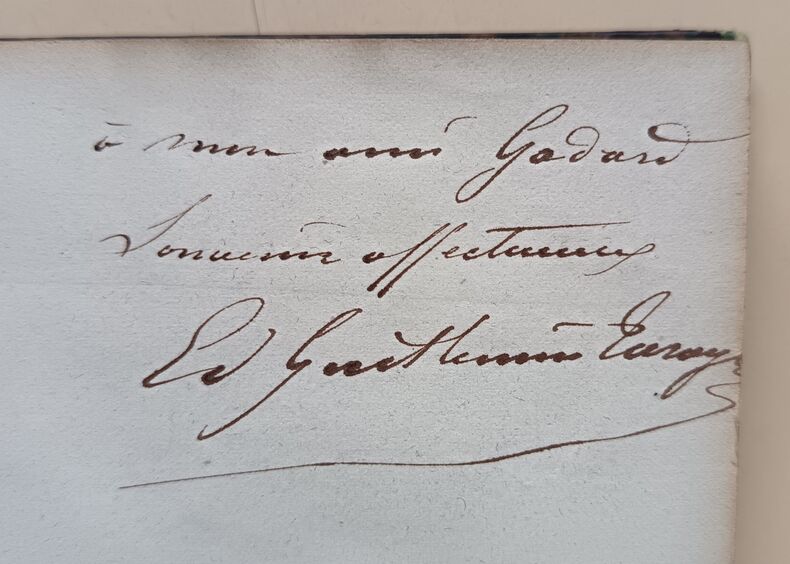 à mon ami Godard
Souvenir affectueux
Ed Guillemin Tarayre